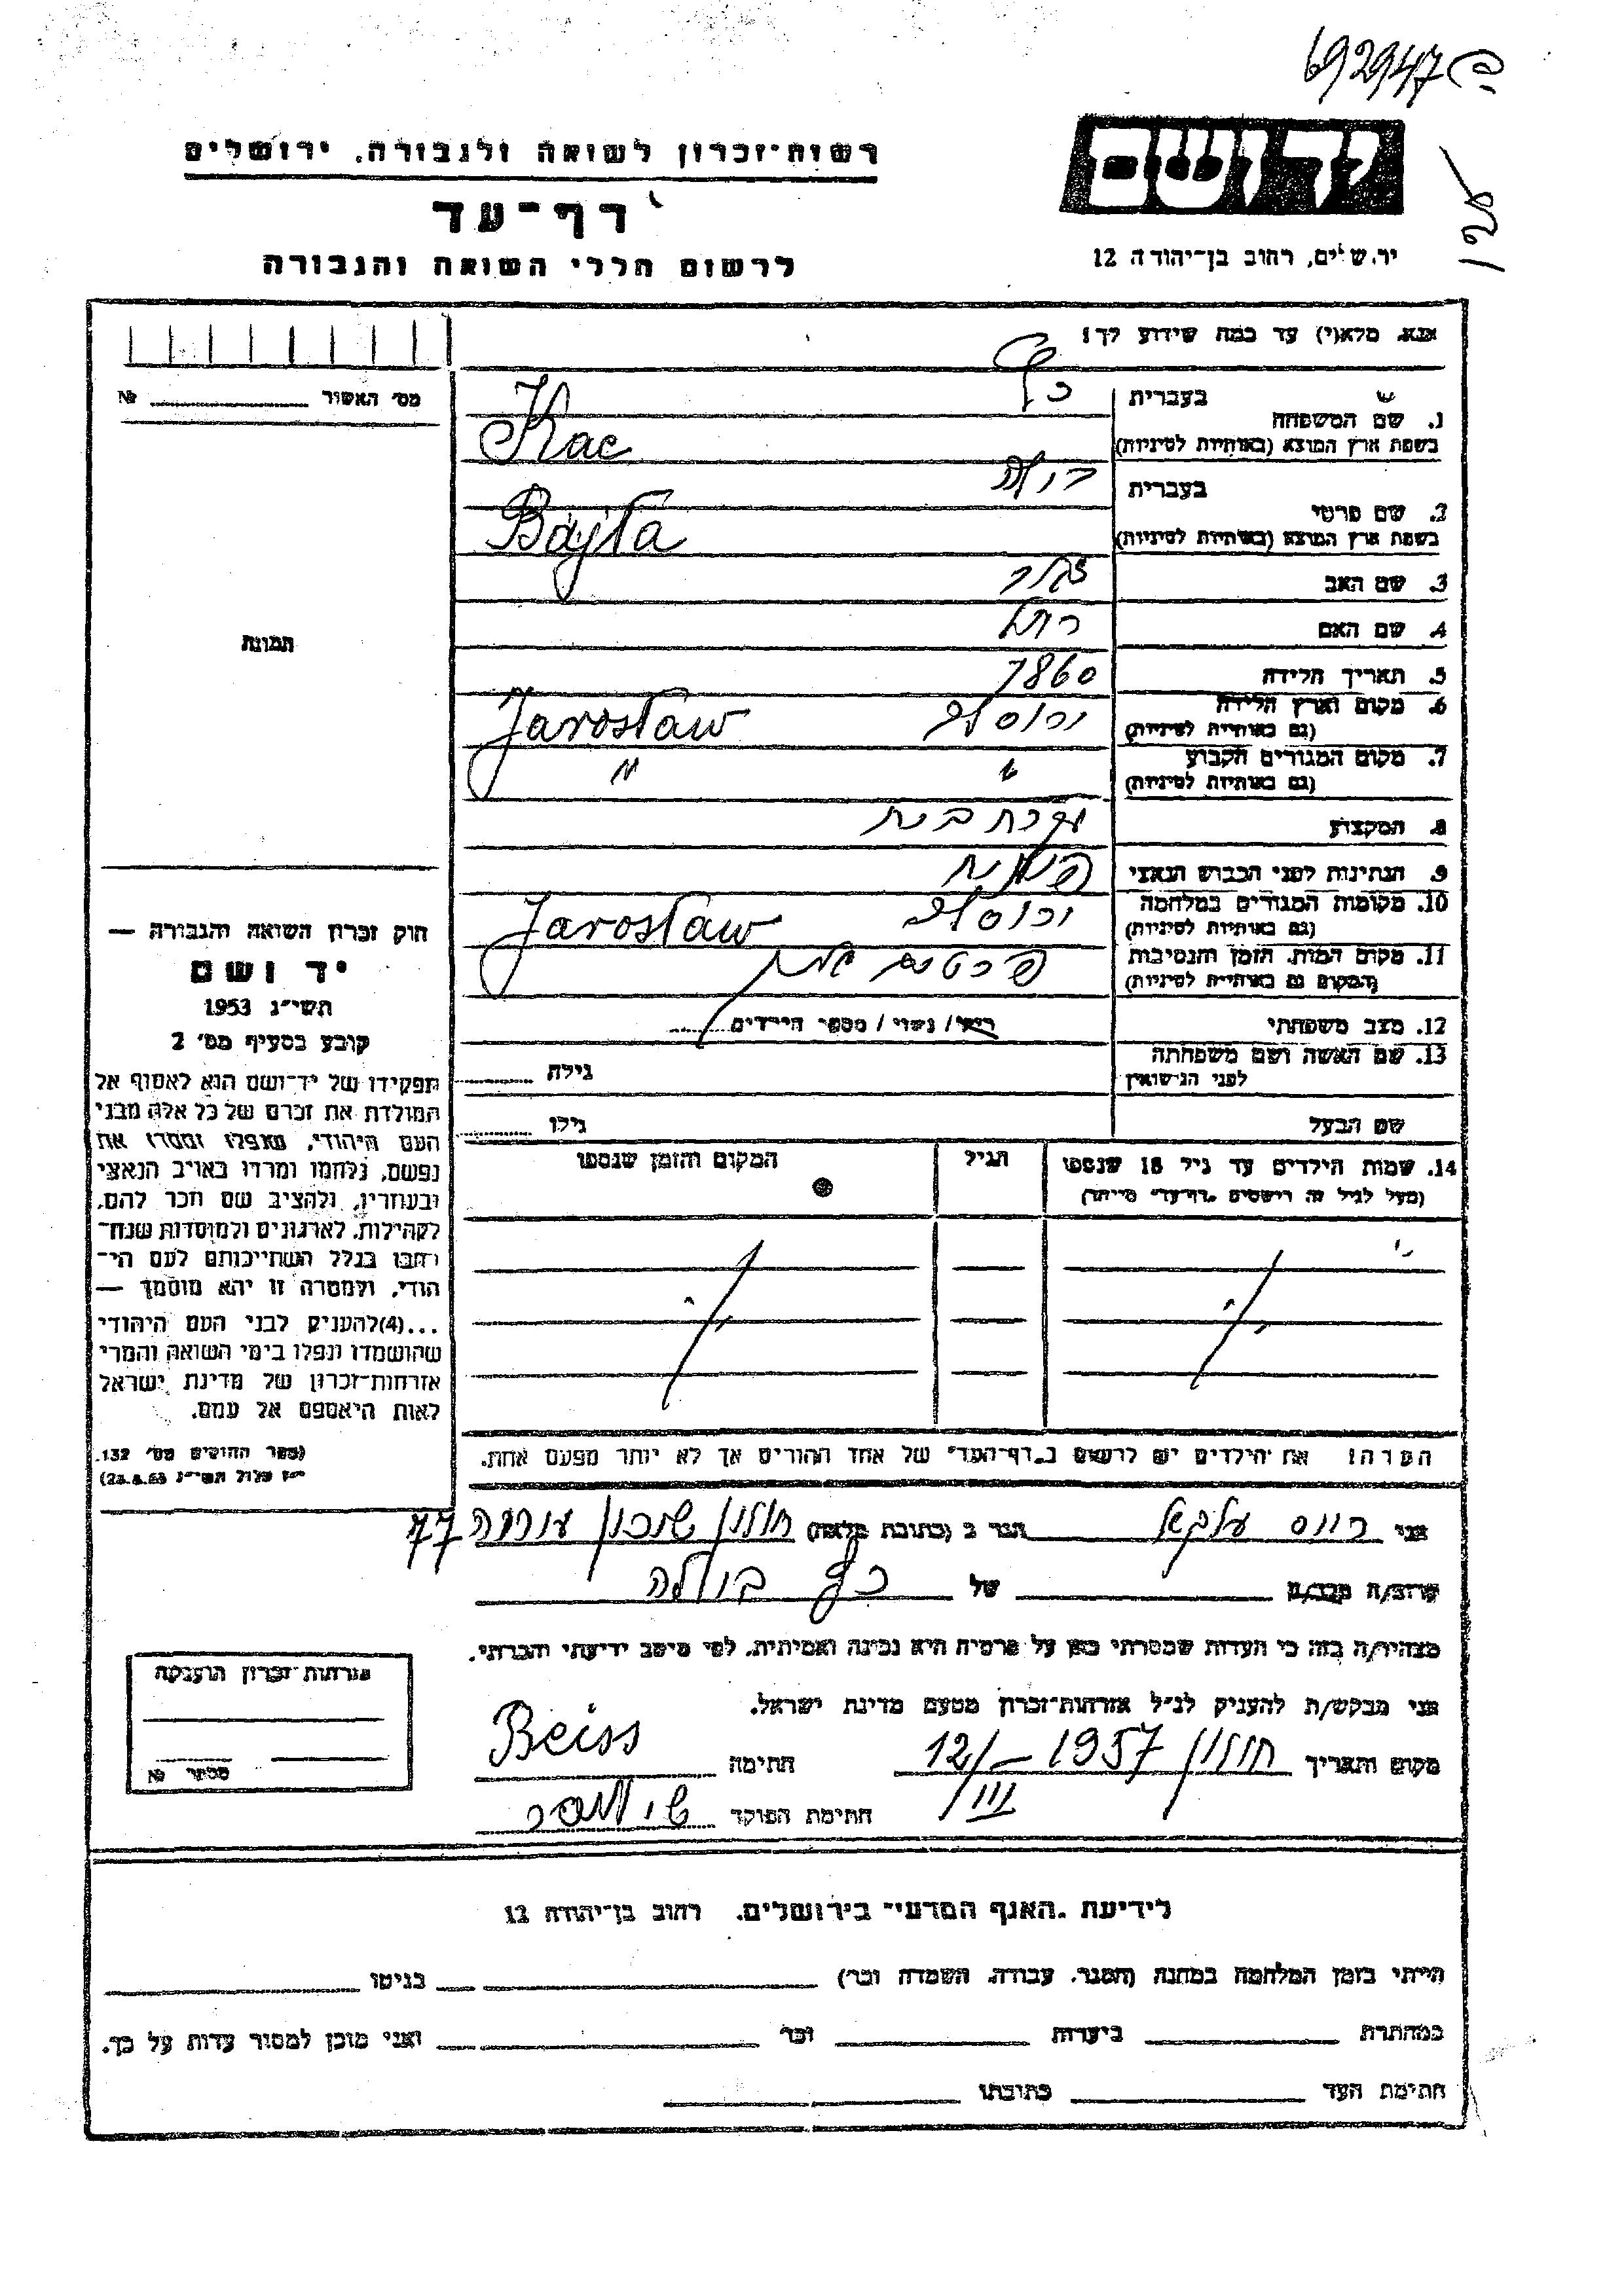 692947
יד ושם
רשות־זכרון לשואה ולגבורה, ירושלים
דף־עד
לרשום חללי השואה והגבורה
ירושלים, רחוב בן־יהודה 12
אנא, מלא(י) עד כמה שידוע לך!
מס׳ האשור № ____
1. שם המשפחה
בעברית כץ
בשפת ארץ המוצא (באותיות לטיניות) Kac
2. שם פרטי
בעברית
בשפת ארץ המוצא (באותיות לטיניות) Bajla
3. שם האב
4. שם האם רחל
5. תאריך הלידה 1860
6. מקום וארץ הלידה
(גם באותיות לטיניות) Jarosław
7. מקום המגורים הקבוע
(גם באותיות לטיניות) " "
8. המקצוע עקרת בית
9. הנתינות לפני הכבוש הנאצי פולנית
10. מקומות המגורים במלחמה
(גם באותיות לטיניות) Jarosław
11. מקום המות, הזמן והנסיבות
(המקום גם באותיות לטיניות)
12. מצב משפחתי רווק/ נשוי/ מספר הילדים
13. שם האשה ושם משפחתה
לפני הנישואין גילה
שם הבעל גילו
14. שמות הילדים עד גיל 18 שנספו הגיל המקום והזמן שנספו
(מעל לגיל זה רושמים „דף־עד״ מיוחד)
הערה! את הילדים יש לרשום ב„דף־העד״ של אחד ההורים אך לא יותר מפעם אחת.
תמונה
חוק זכרון השואה והגבורה —
יד ושם
תשי״ג 1953
קובע בסעיף מס׳ 2
תפקידו של יד־ושם הוא לאסוף אל
המולדת את זכרם של כל אלה מבני
העם היהודי, שנפלו ומסרו את
נפשם, נלחמו ומרדו באויב הנאצי
ובעוזריו, ולהציב שם וזכר להם,
לקהילות, לארגונים ולמוסדות שנח־
רבו בגלל השתייכותם לעם הי־
הודי, ולמטרה זו יהא מוסמך —
...(4)להעניק לבני העם היהודי
שהושמדו ונפלו בימי השואה והמרי
אזרחות־זכרון של מדינת ישראל
לאות היאספם אל עמם.
(ספר החוקים מס׳ 132.
י״ז אלול תשי״ג 28.8.53)
אני הגר ב (כתובת מלאה) חולון שכון עזרה 77
קרוב/ה מכר/ה ____ של כץ ביילה
מצהיר/ה בזה כי העדות שמסרתי כאן על פרטיה היא נכונה ואמיתית, לפי מיטב ידיעתי והכרתי.
אני מבקש/ת להעניק לנ״ל אזרחות־זכרון מטעם מדינת ישראל.
מקום ותאריך חולון 12/III – 1957 חתימה Beiss
חתימת הפוקד
אזרחות־זכרון הוענקה
מספר №
לידיעת „האגף המדעי״ בירושלים, רחוב בן־יהודה 12
הייתי בזמן המלחמה במחנה (הסגר, עבודה, השמדה וכו׳) ____ בגיטו ____
במחתרת ____ ביערות ____ וכו׳ ____ ואני מוכן למסור עדות על כך.
חתימת העד ____ כתובתו ____